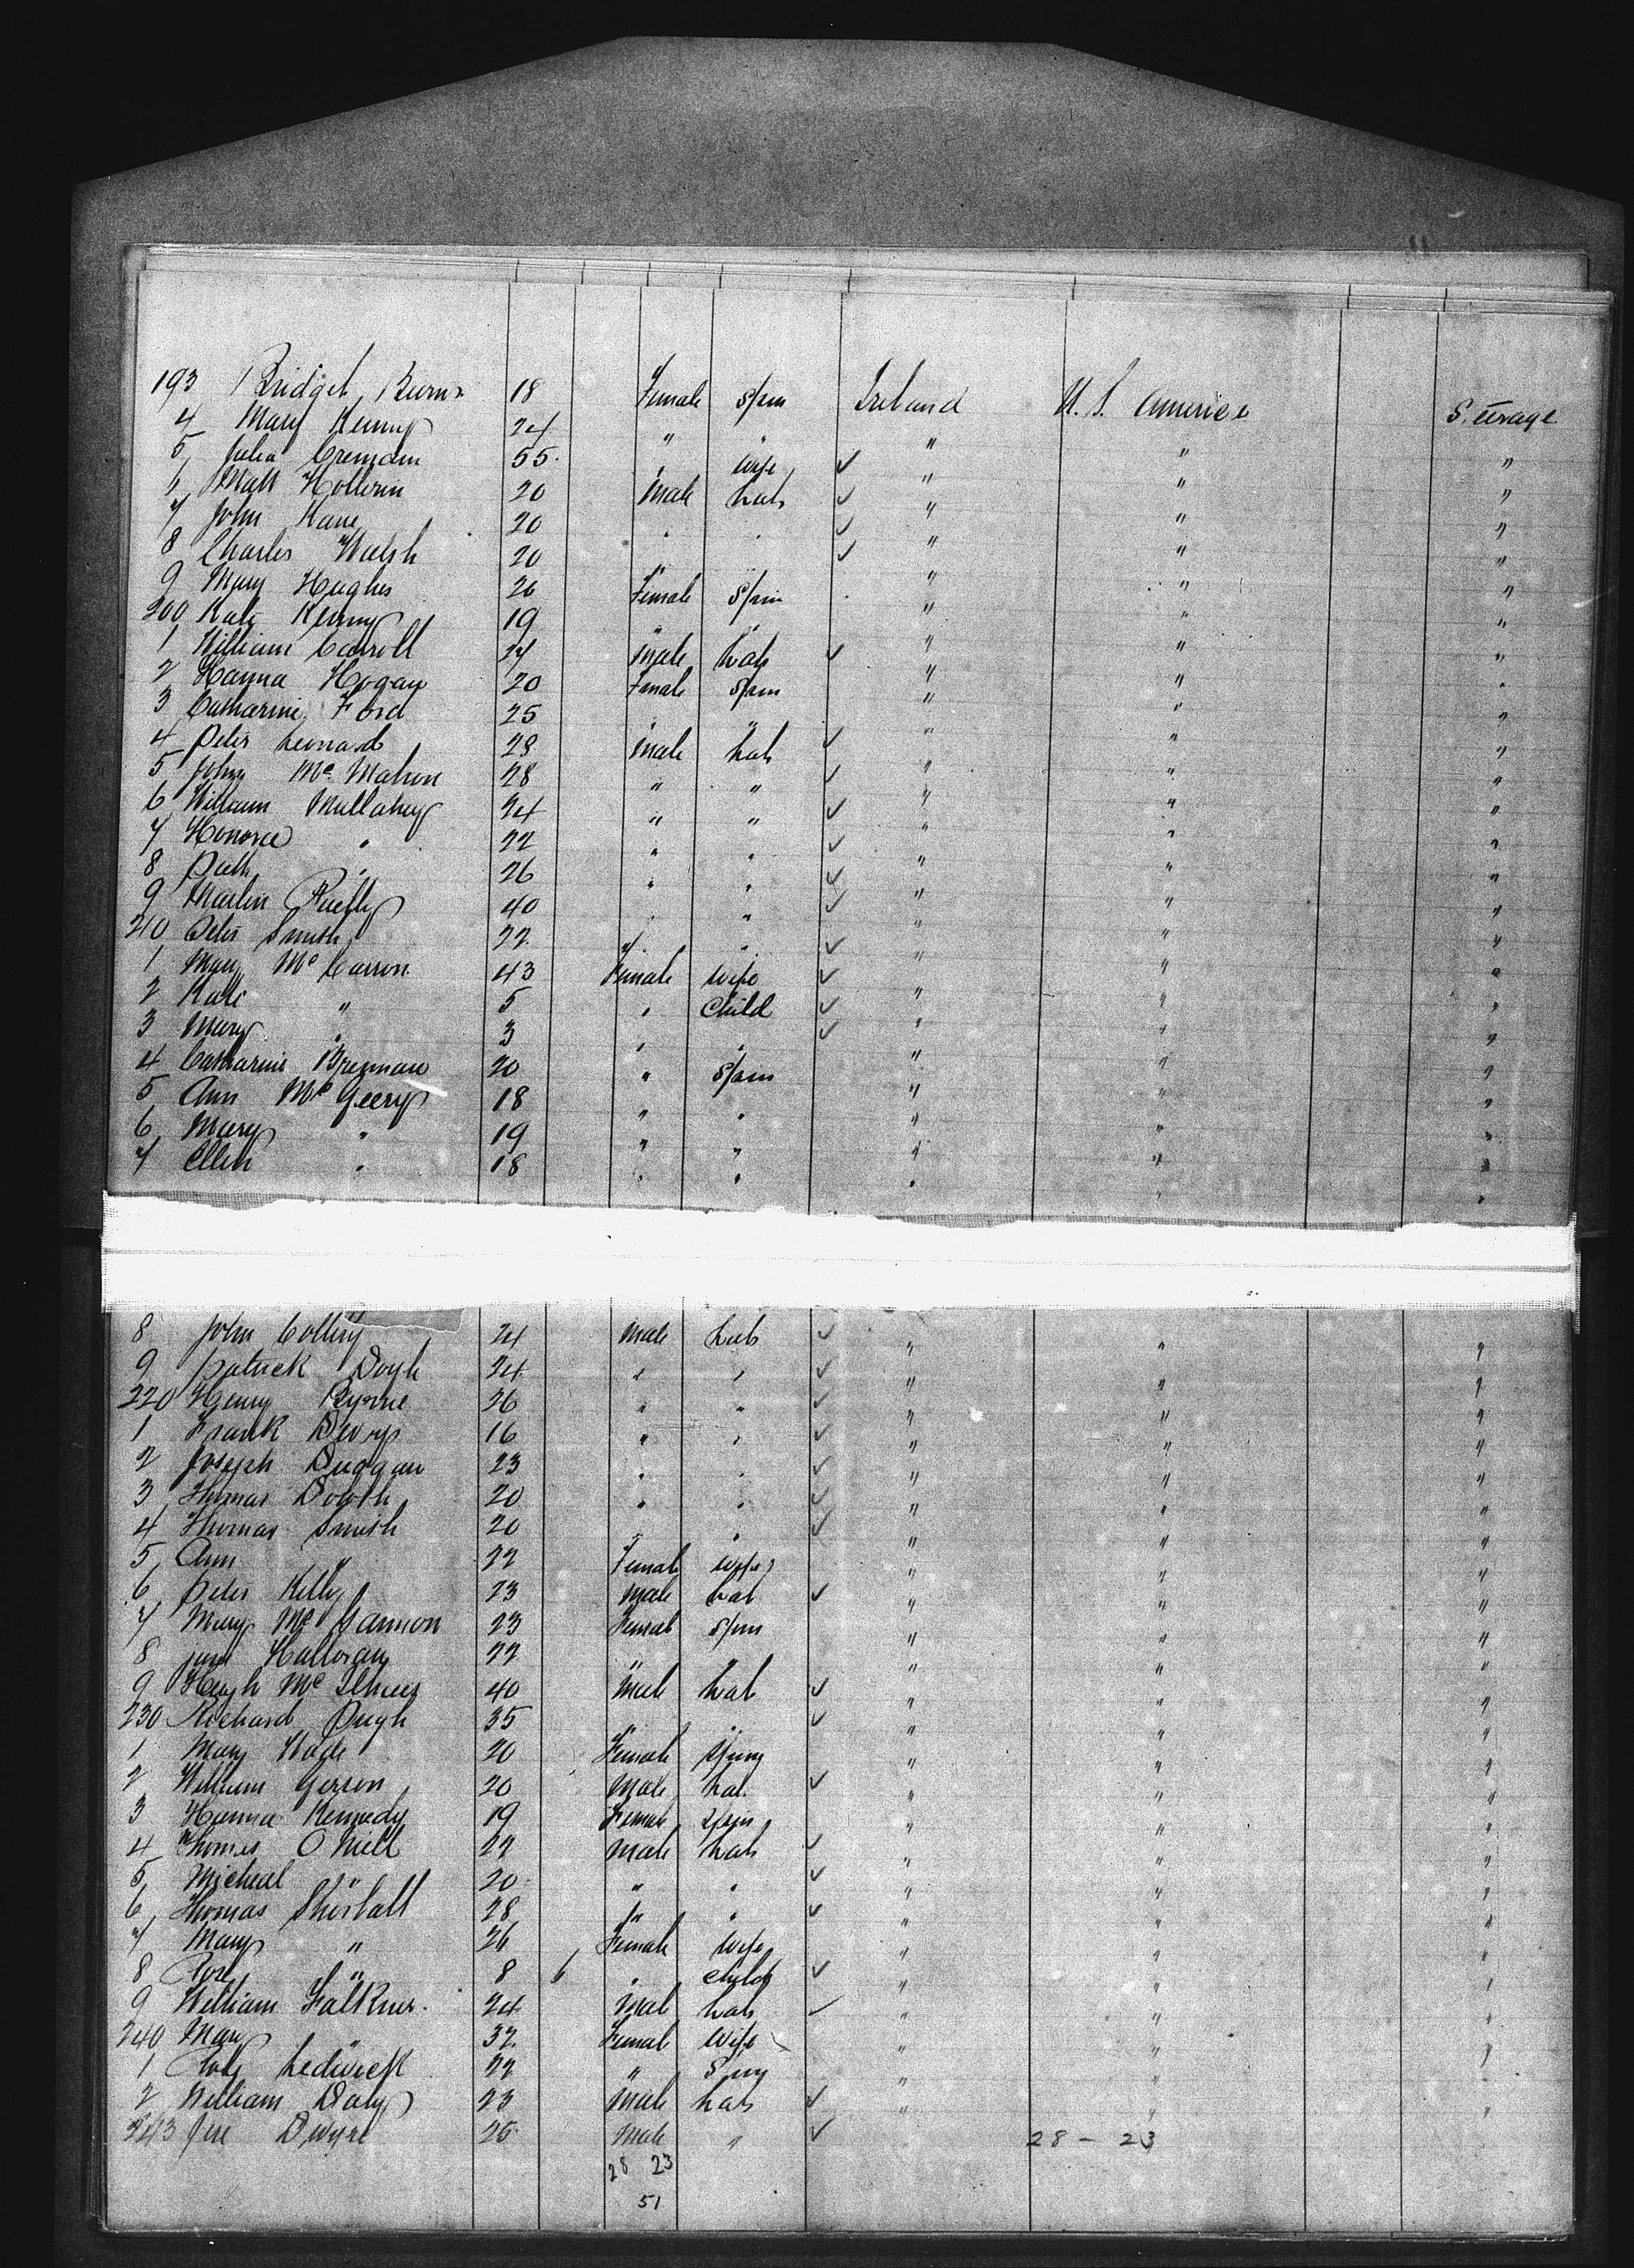 193 Bridget Burns 18 Female Spin Ireland U. S. America Steerage
4 Mary Kenny 24 " " " " "
5 Julia 55 " wife ✓ " " "
6 Matt Holleran 20 Male Lab ✓ " " "
7 John Kane 20 " " ✓ " " "
8 Charles Walsh 20 " " ✓ " " "
9 Mary Hughes 26 Female Spin " " "
200 Kate Kenny 19 " " " " "
1 William Carroll 24 Male Lab ✓ " " "
2 Hanna Hogan 20 Female Spin " " "
3 Catharine Ford 25 " " " " "
4 Peter Leonard 28 Male Lab ✓ " " "
5 John McMahon 28 " " ✓ " " "
6 William Mullahey 24 " " ✓ " " "
7 Honora " 22 " " ✓ " " "
8 Patk " 26 " " ✓ " " "
9 Martin 40 " " ✓ " " "
210 Peter Smith 22 " " ✓ " " "
1 Mary McCarron 43 Female wife ✓ " " "
2 Kate " 5 " Child ✓ " " "
3 Mary " 3 " " ✓ " " "
4 Catharine Brennan 20 " Spin " " "
5 Ann McGeery 18 " " " " "
6 Mary " 19 " " " " "
7 Ellen " 18 " " " " "
8 John Collery 24 Male Lab ✓ " " "
9 Patrick Doyle 24 " " ✓ " " "
220 Henry Byrne 26 " " ✓ " " "
1 Frank 16 " " ✓ " " "
2 Joseph Duggan 23 " " ✓ " " "
3 Thomas 20 " " ✓ " " "
4 Thomas Smith 20 " " ✓ " " "
5 Ann " 22 Female wife " " "
6 Peter Kelly 23 Male Lab ✓ " " "
7 Mary McGannon 23 Female Spin " " "
8 Halloran 22 " " " " "
9 Hugh 40 Male Lab ✓ " " "
230 Richard Pugh 35 " " ✓ " " "
1 Mary Wade 20 Female Spin " " "
2 William 20 Male Lab ✓ " " "
3 Hanna Kennedy 19 Female Spin " " "
4 Thomas O Niell 22 Male Lab ✓ " " "
5 Micheal " 20 " " ✓ " " "
6 Thomas Shortall 28 " " ✓ " " "
7 Mary " 26 Female Wife " " "
8 Rose " 8 " Child ✓ " " "
9 William Falkner 24 Male Lab ✓ " " "
240 Mary " 32 Female Wife " " "
1 Ledwick 22 " Spin " " "
2 William Daly 23 Male Lab ✓ " " "
243 Dwyre 25 Male " ✓ 28 - 23
28 23
51